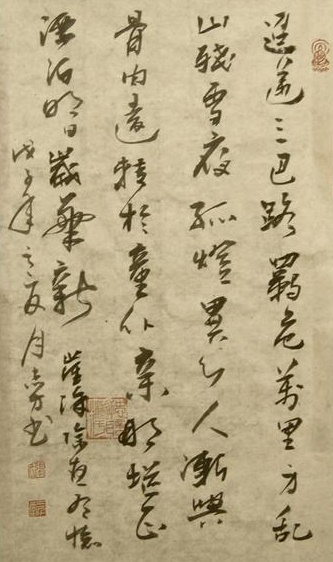 迢遞三巴路羈危萬里身乱
山殘雪夜孤燈異乡人漸與
骨肉遠轉於童仆亲那堪正
漂泊明日歲華新 崔涂除夜有懷
戊子年之夏月书